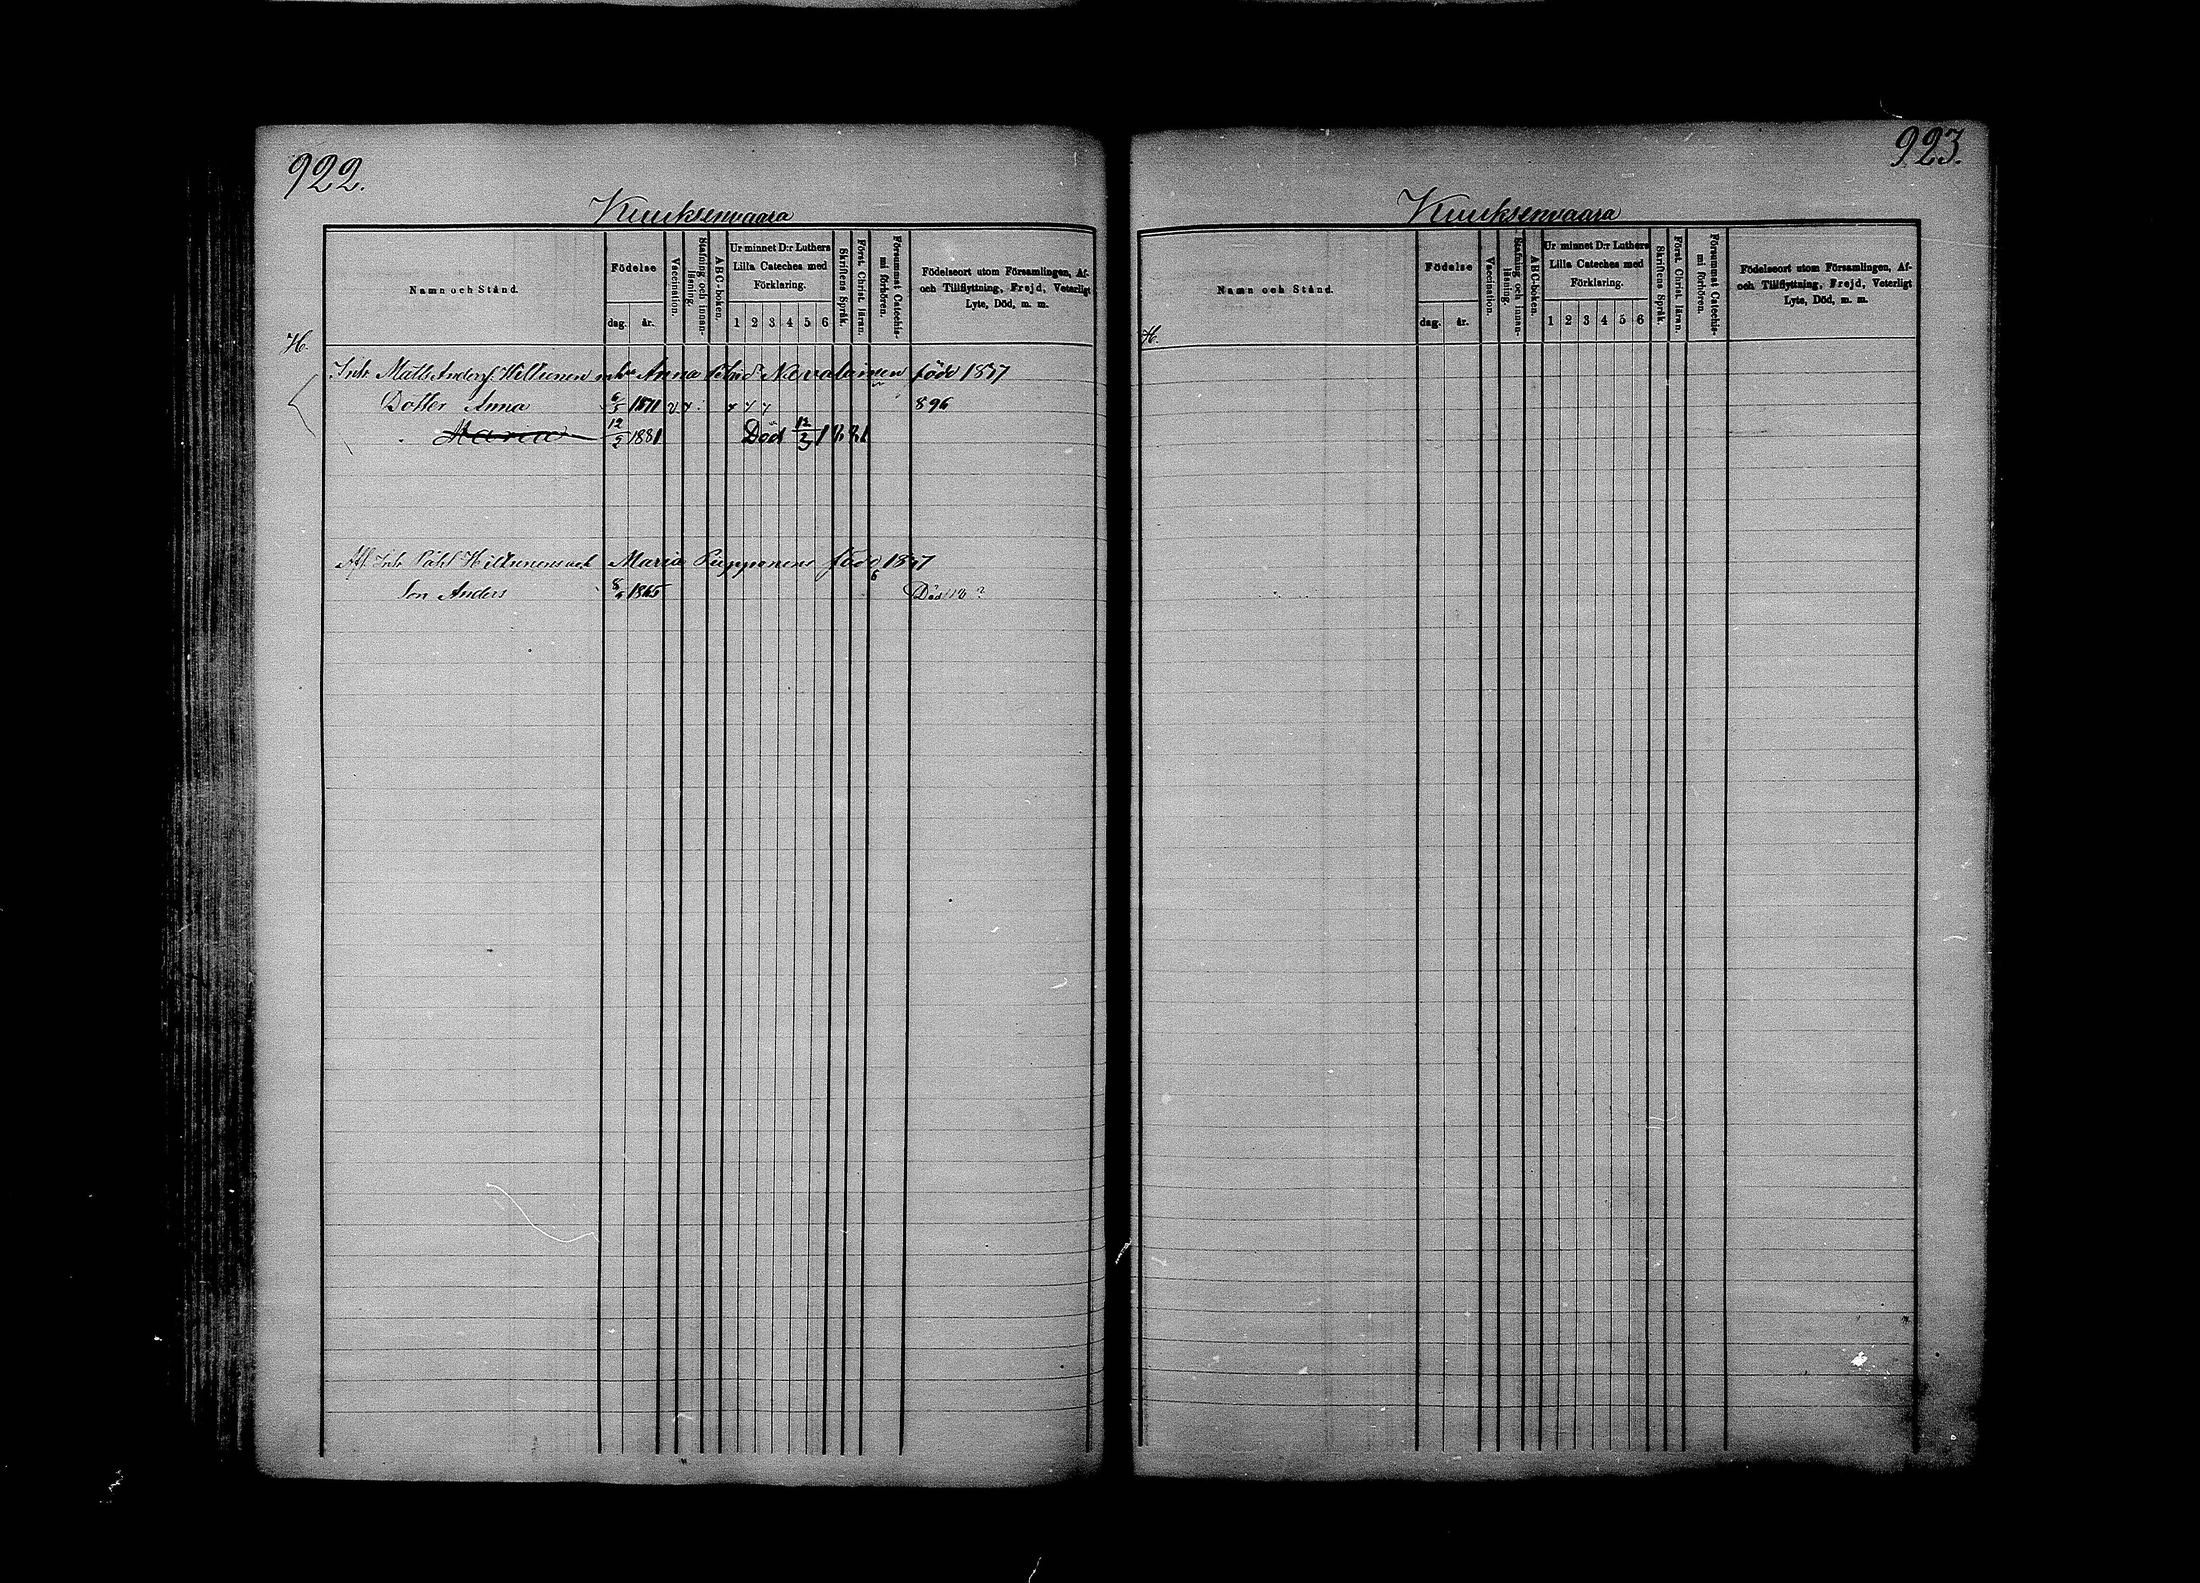 922.
Kuuksenvaara
Namn och Stånd.
Födelse
dag. år.
Vaccination.
Stafning och innan-
läsning.
ABC-boken.
Ur minnet D:r Luthers
Lilla Cateches med
Förklaring.
1 2 3 4 5 6
Skriftens Språk.
Först. Christ. läran.
Försummat Catechis-
mi förhören.
Födelseort utom Församlingen, Af-
och Tillflyttning, Frejd, Veterligt
Lyte, Död, m. m.
H.
Inh. Matts Andersf Hiltunen Anna Nevalainen född 1837
Dotter Anna 1871 896
Maria 12/2 1881 Död 12/3 1881
Afl. Inh. Påhl Hiltunens Maria Piipponens född
Son Anders 1865 Död
923.
Kuuksenvaara
Namn och Stånd.
Födelse
dag. år.
Vaccination.
Stafning och innan-
läsning.
ABC-boken.
Ur minnet D:r Luthers
Lilla Cateches med
Förklaring.
1 2 3 4 5 6
Skriftens Språk.
Först. Christ. läran.
Försummat Catechis-
mi förhören.
Födelseort utom Församlingen, Af-
och Tillflyttning, Frejd, Veterligt
Lyte, Död, m. m.
H.